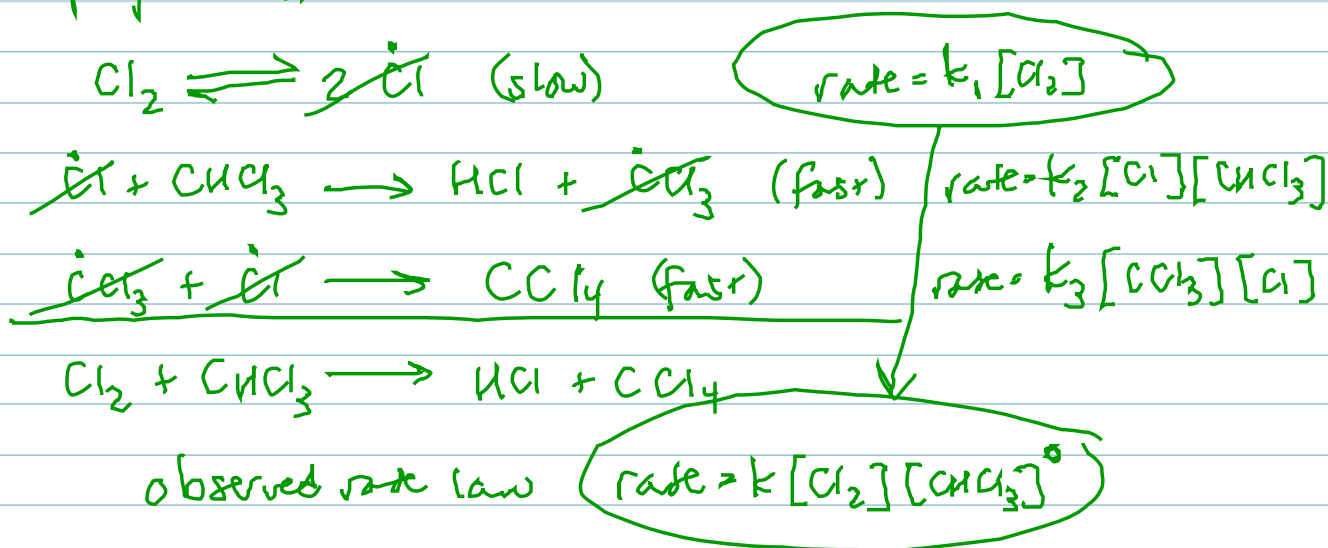 Cl₂ ⇌ 2 Ċl (slow) rate = k₁[Cl₂]
Ċl + CHCl₃ → HCl + ĊCl₃ (fast) rate = k₂[Cl][CHCl₃]
ĊCl₃ + Ċl → CCl₄ (fast) rate = k₃[CCl₃][Cl]
Cl₂ + CHCl₃ → HCl + CCl₄
observed rate law rate = k[Cl₂][CHCl₃]⁰